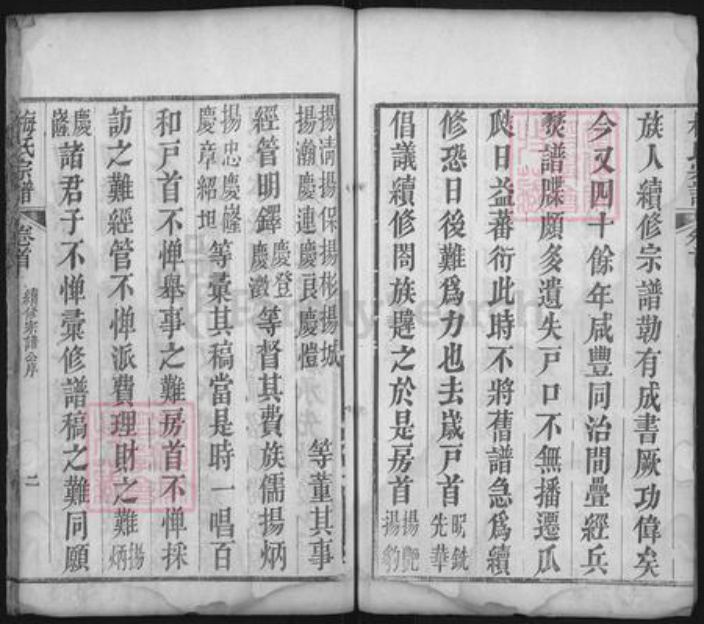 族人續修宗譜勒有成書厥功偉矣
今又四十餘年咸豐同治間疊經兵
燹譜牒頗多遺失戸口不無播遷瓜
瓞日益蕃衍此時不將舊譜急爲續
修恐日後難爲力也去歲戸首昭銑先華
倡議續修閤族韙之於是房首揚艷揚豹
揚清揚保揚彬揚城
揚瀚慶連慶良慶愷等董其事
經管明鐸慶登慶澂等督其費族儒揚炳
揚忠慶㠖慶章紹坦等彙其稿當是時一唱百
和戸首不憚舉事之難房首不憚採
訪之難經管不憚派費理財之難揚炳
慶㠖諸君子不憚彙修譜稿之難同願
梅氏宗譜
卷首
續修宗譜公序
二